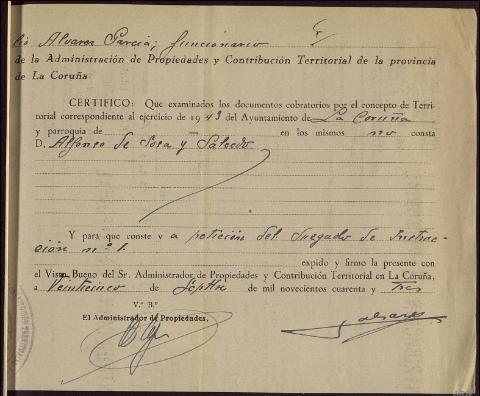 lio Alvarez Garcia; funcionario
de la Administración de Propiedades y Contribución Territorial de la provincia
de La Coruña
CERTIFICO: Que examinados los documentos cobratorios por el concepto de Terri-
torial correspondiente al ejercicio de 1943 del Ayuntamiento de La Coruña
y parroquia de en los mismos no consta
D. Alfonso de Sosa y Salcedo
Y para que conste y a petición del Juzgado de Instruc-
ción nº 1.
expido y firmo la presente con
el Visto Bueno del Sr. Administrador de Propiedades y Contribución Territorial en La Coruña,
a Veinticinco de Septbre de mil novecientos cuarenta y tres
V.º B.º
El Administrador de Propiedades,